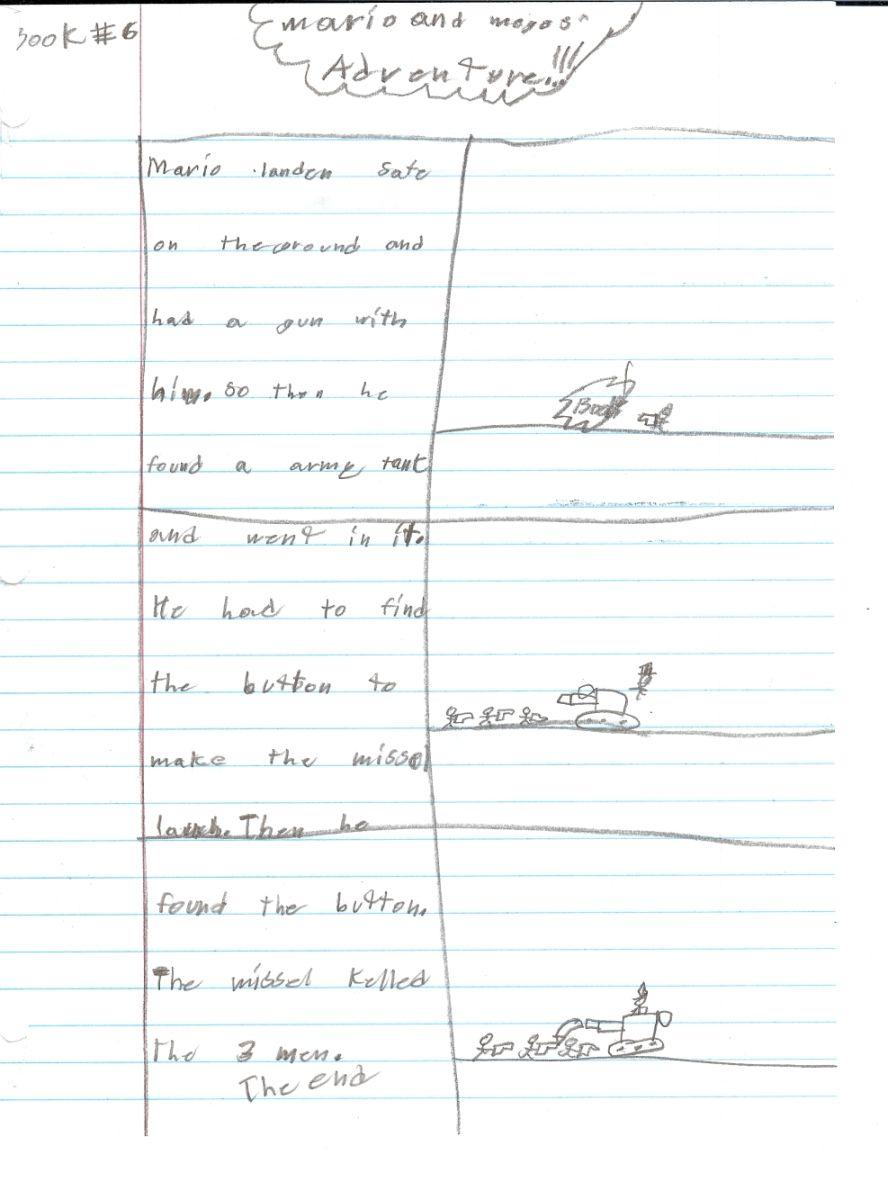 BOOK #6
mario and mojos'
Adventure!!!
Mario landen safe
on the ground and
had a gun with
him. so then he
found a army tank
and went in it.
He had to find
the button to
make the missel
launch. Then he
found the button.
The missel Kelled
the 3 men.
The end